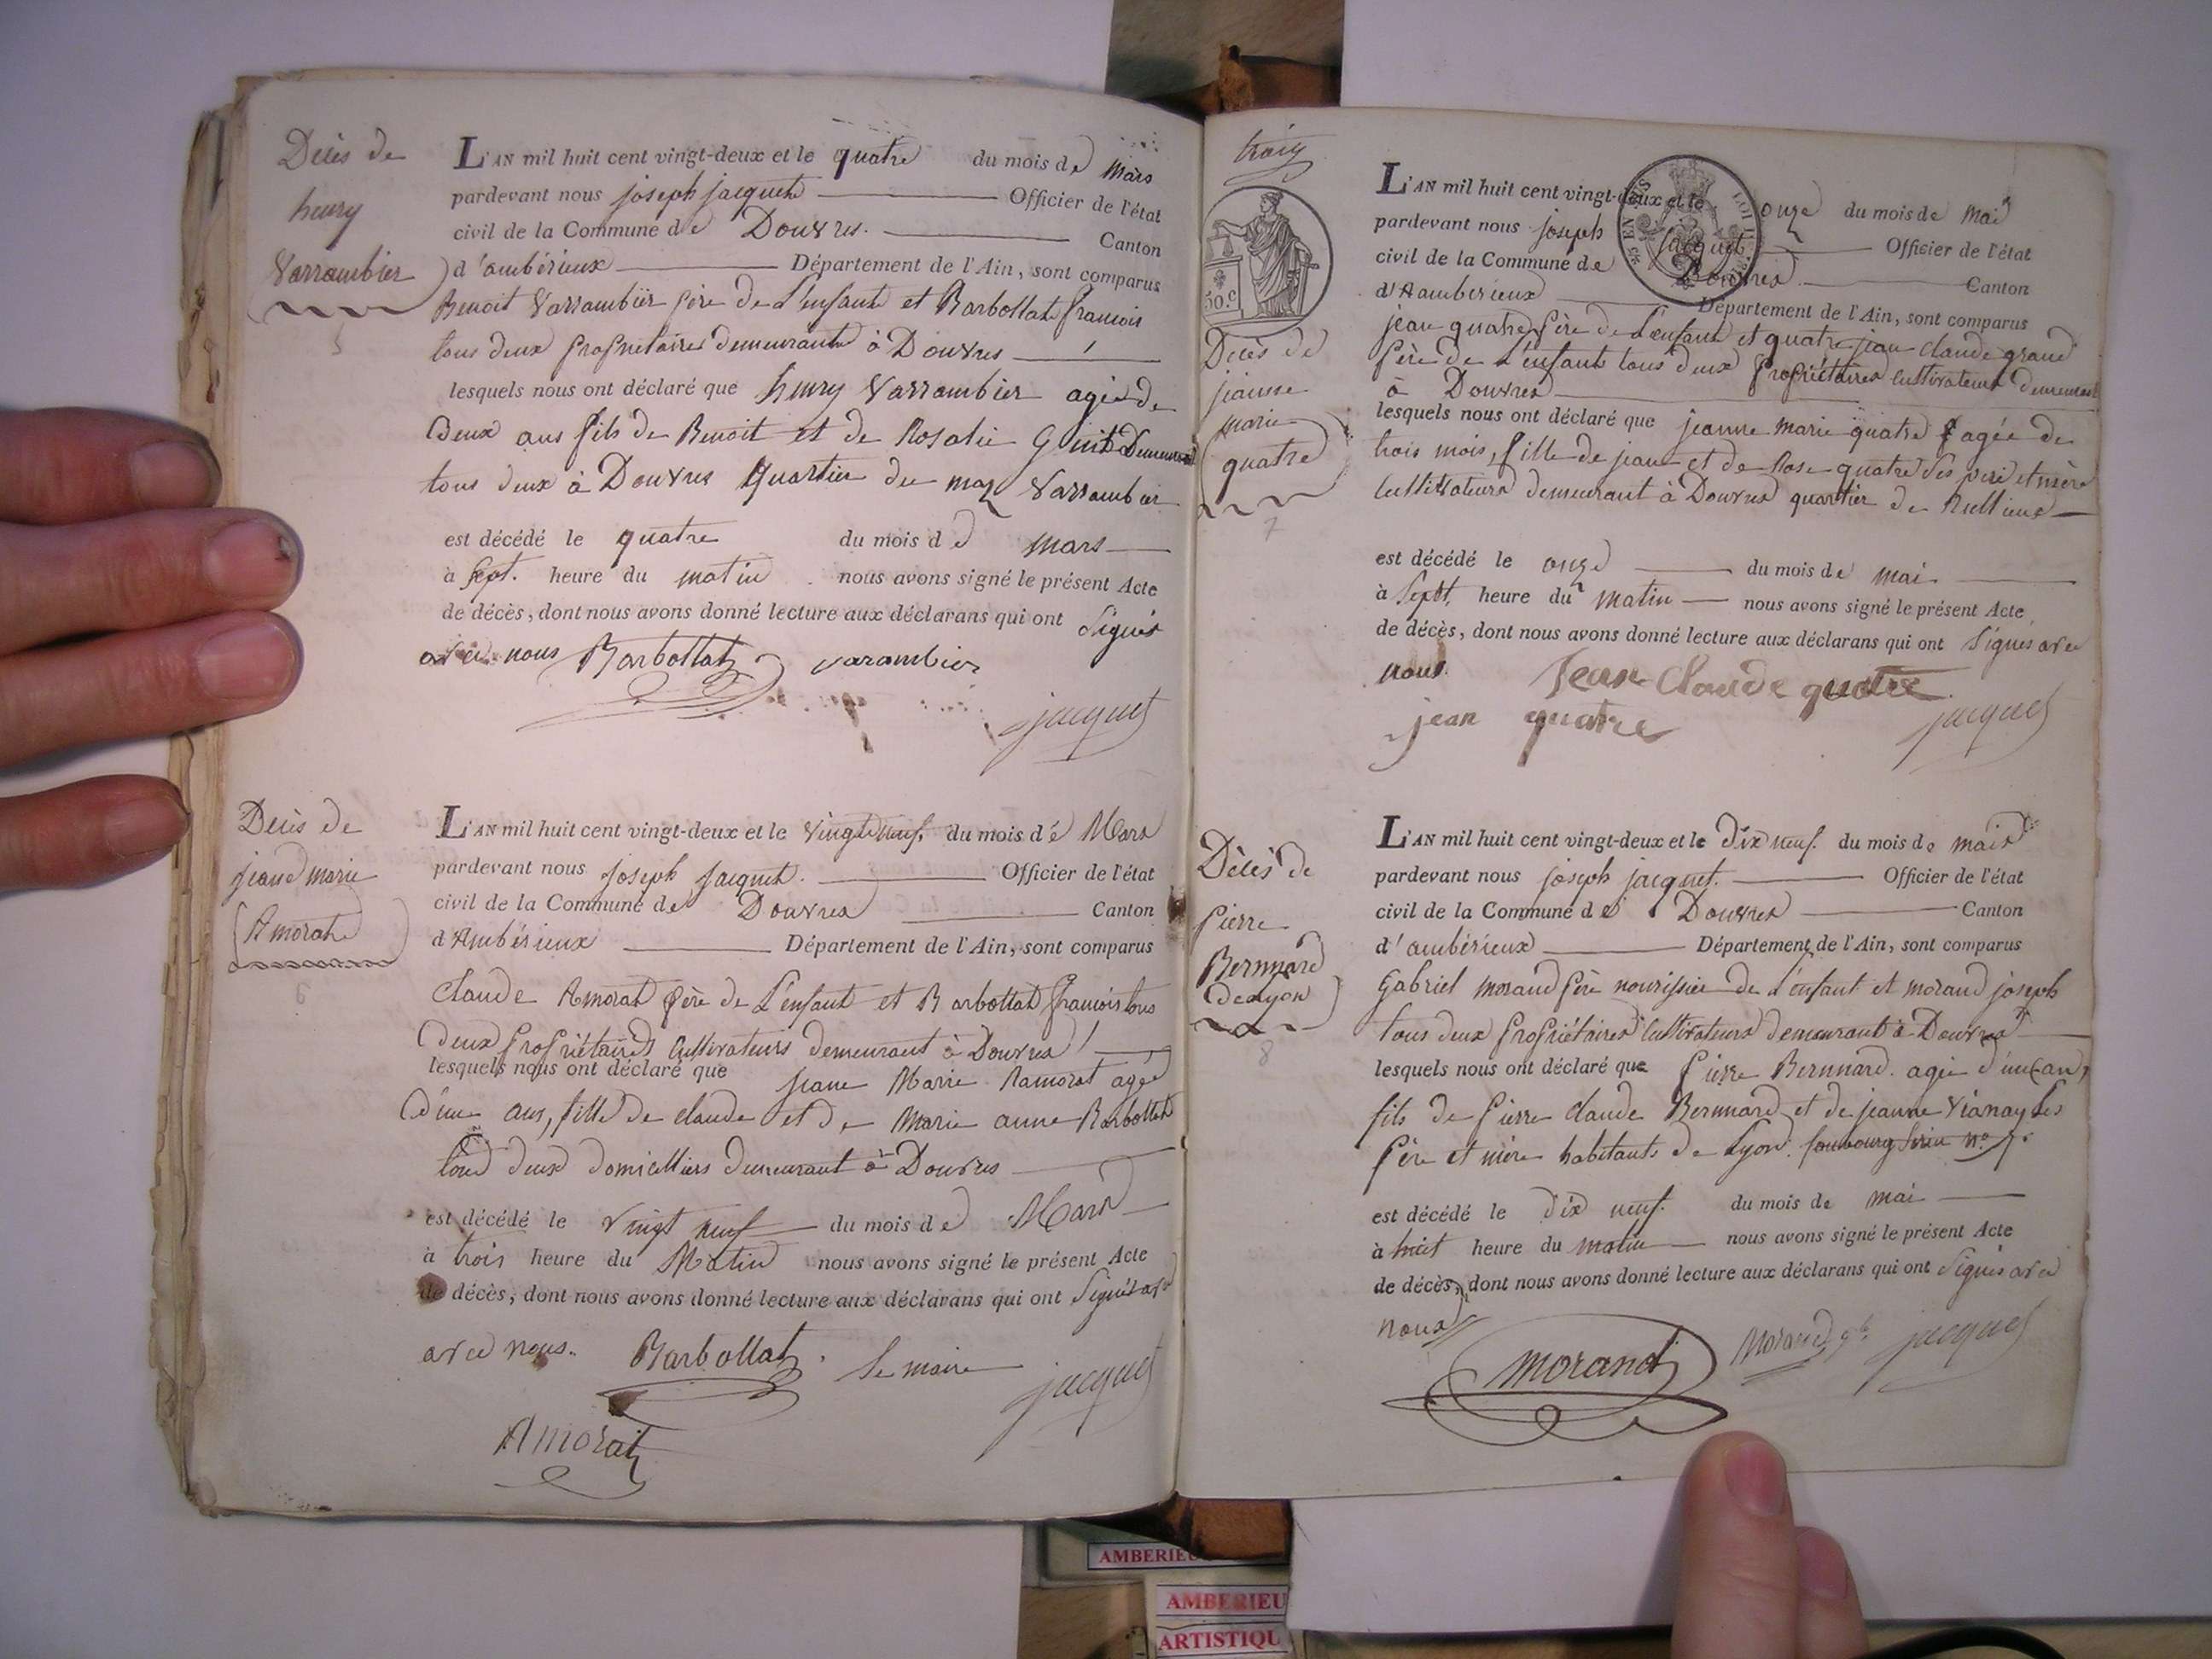 Décès de
henry
Varrambier
5
L'AN mil huit cent vingt-deux et le quatre du mois de Mars
pardevant nous joseph jacquet Officier de l'état
civil de la Commune de Douvres. Canton
d'ambérieux Département de l'Ain, sont comparus
Benoit Varrambier père de L'enfant et Barbollat françois
tous deux propriétaires demeurant à Douvres
lesquels nous ont déclaré que henry Varrambier agé de
Deux ans fils de Benoit et de Rosalie
tous deux à Douvres Quartier du maz Varrambier
est décédé le quatre du mois de mars
à sept. heure du matin nous avons signé le présent Acte
de décès, dont nous avons donné lecture aux déclarans qui ont signés
avec nous Barbollat varambier
jacquet
Décès de
jeanne marie
Amorat
6
L'AN mil huit cent vingt-deux et le vingt neuf du mois de Mars
pardevant nous joseph jacquet. Officier de l'état
civil de la Commune de Douvres Canton
d'Ambérieux Département de l'Ain, sont comparus
Claude Amorat père de L'enfant et Barbollat françois tous
deux propriétaires cultivateurs demeurant à Douvres
lesquels nous ont déclaré que jeane Marie Ramorat agée
d'une ans, fille de claude et de Marie anne Barbollat
tous deux domicilliers demeurant à Douvres
est décédé le vingt neuf du mois de Mars
à trois heure du Matin nous avons signé le présent Acte
de décès, dont nous avons donné lecture aux déclarans qui ont signés
avec nous. Barbollat Le maire jacquet
Amorat
trois
30.c
Décès de
jeanne
marie
quatre
7
L'AN mil huit cent vingt-deux et le onze du mois de mai
pardevant nous joseph jacquet Officier de l'état
civil de la Commune de Douvres Canton
d'Aambérieux Département de l'Ain, sont comparus
jean quatre père de L'enfant et quatre jean claude grand
père de L'enfant tous deux propriétaires cultivateurs demeurant
à Douvres
lesquels nous ont déclaré que jeanne marie quatre agée de
trois mois, fille de jean et de Rose quatre ses père et mère
cultivateurs demeurant à Douvres quartier de
est décédé le onze du mois de mai
à sept. heure du matin nous avons signé le présent Acte
de décès, dont nous avons donné lecture aux déclarans qui ont signés avec
nous. Jean Claude quatre
jean quatre jacquet
Décès de
pierre
Bernnard
de lyon
8
L'AN mil huit cent vingt-deux et le dix neuf. du mois de mai
pardevant nous joseph jacquet. Officier de l'état
civil de la Commune de Douvres Canton
d'ambérieux Département de l'Ain, sont comparus
Gabriel morand père nourissier de L'enfant et morand joseph
tous deux propriétaires cultivateurs demeurant à Douvres
lesquels nous ont déclaré que pierre Bernnard. agée d'un an,
fils de pierre claude Bernnard et de jeanne Vianay ses
père et mère habitants de Lyon. faubourg
est décédé le dix neuf. du mois de mai
à huit heure du matin nous avons signé le présent Acte
de décès, dont nous avons donné lecture aux déclarans qui ont signés avec
nous
morand Morand jacquet
AMBERIEU
AMBERIEU
ARTISTIQU